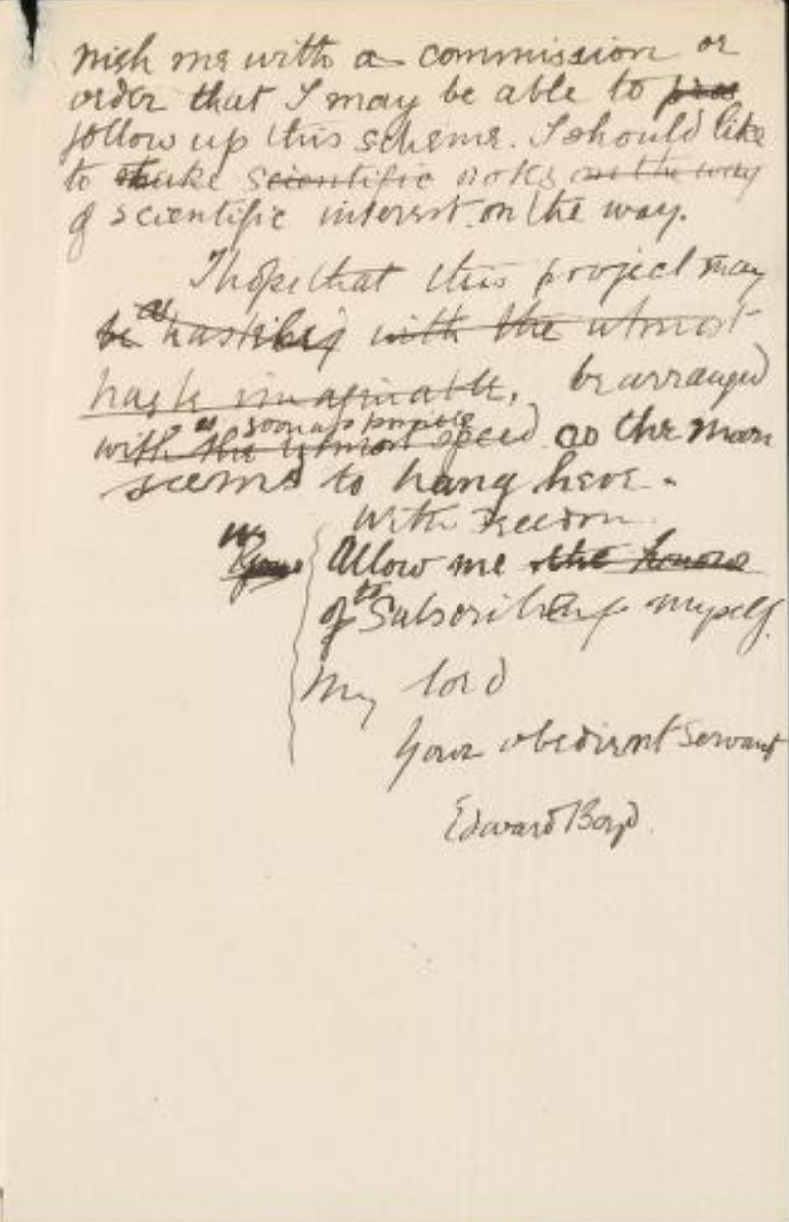 nish me with a commission or
order that I may be able to pros
follow up this scheme. I should like
to make scientific notes on the way
of scientific interest on the way.
I hope that this project may
be as hastily with the utmost
haste imaginable, be arranged
as soon as possible
with the utmost speed as the man
seems to hang here.
With Freedom
Allow me the honour
of to Subscribing myself
My lord
Your obedient Servant
Edward Boyd.